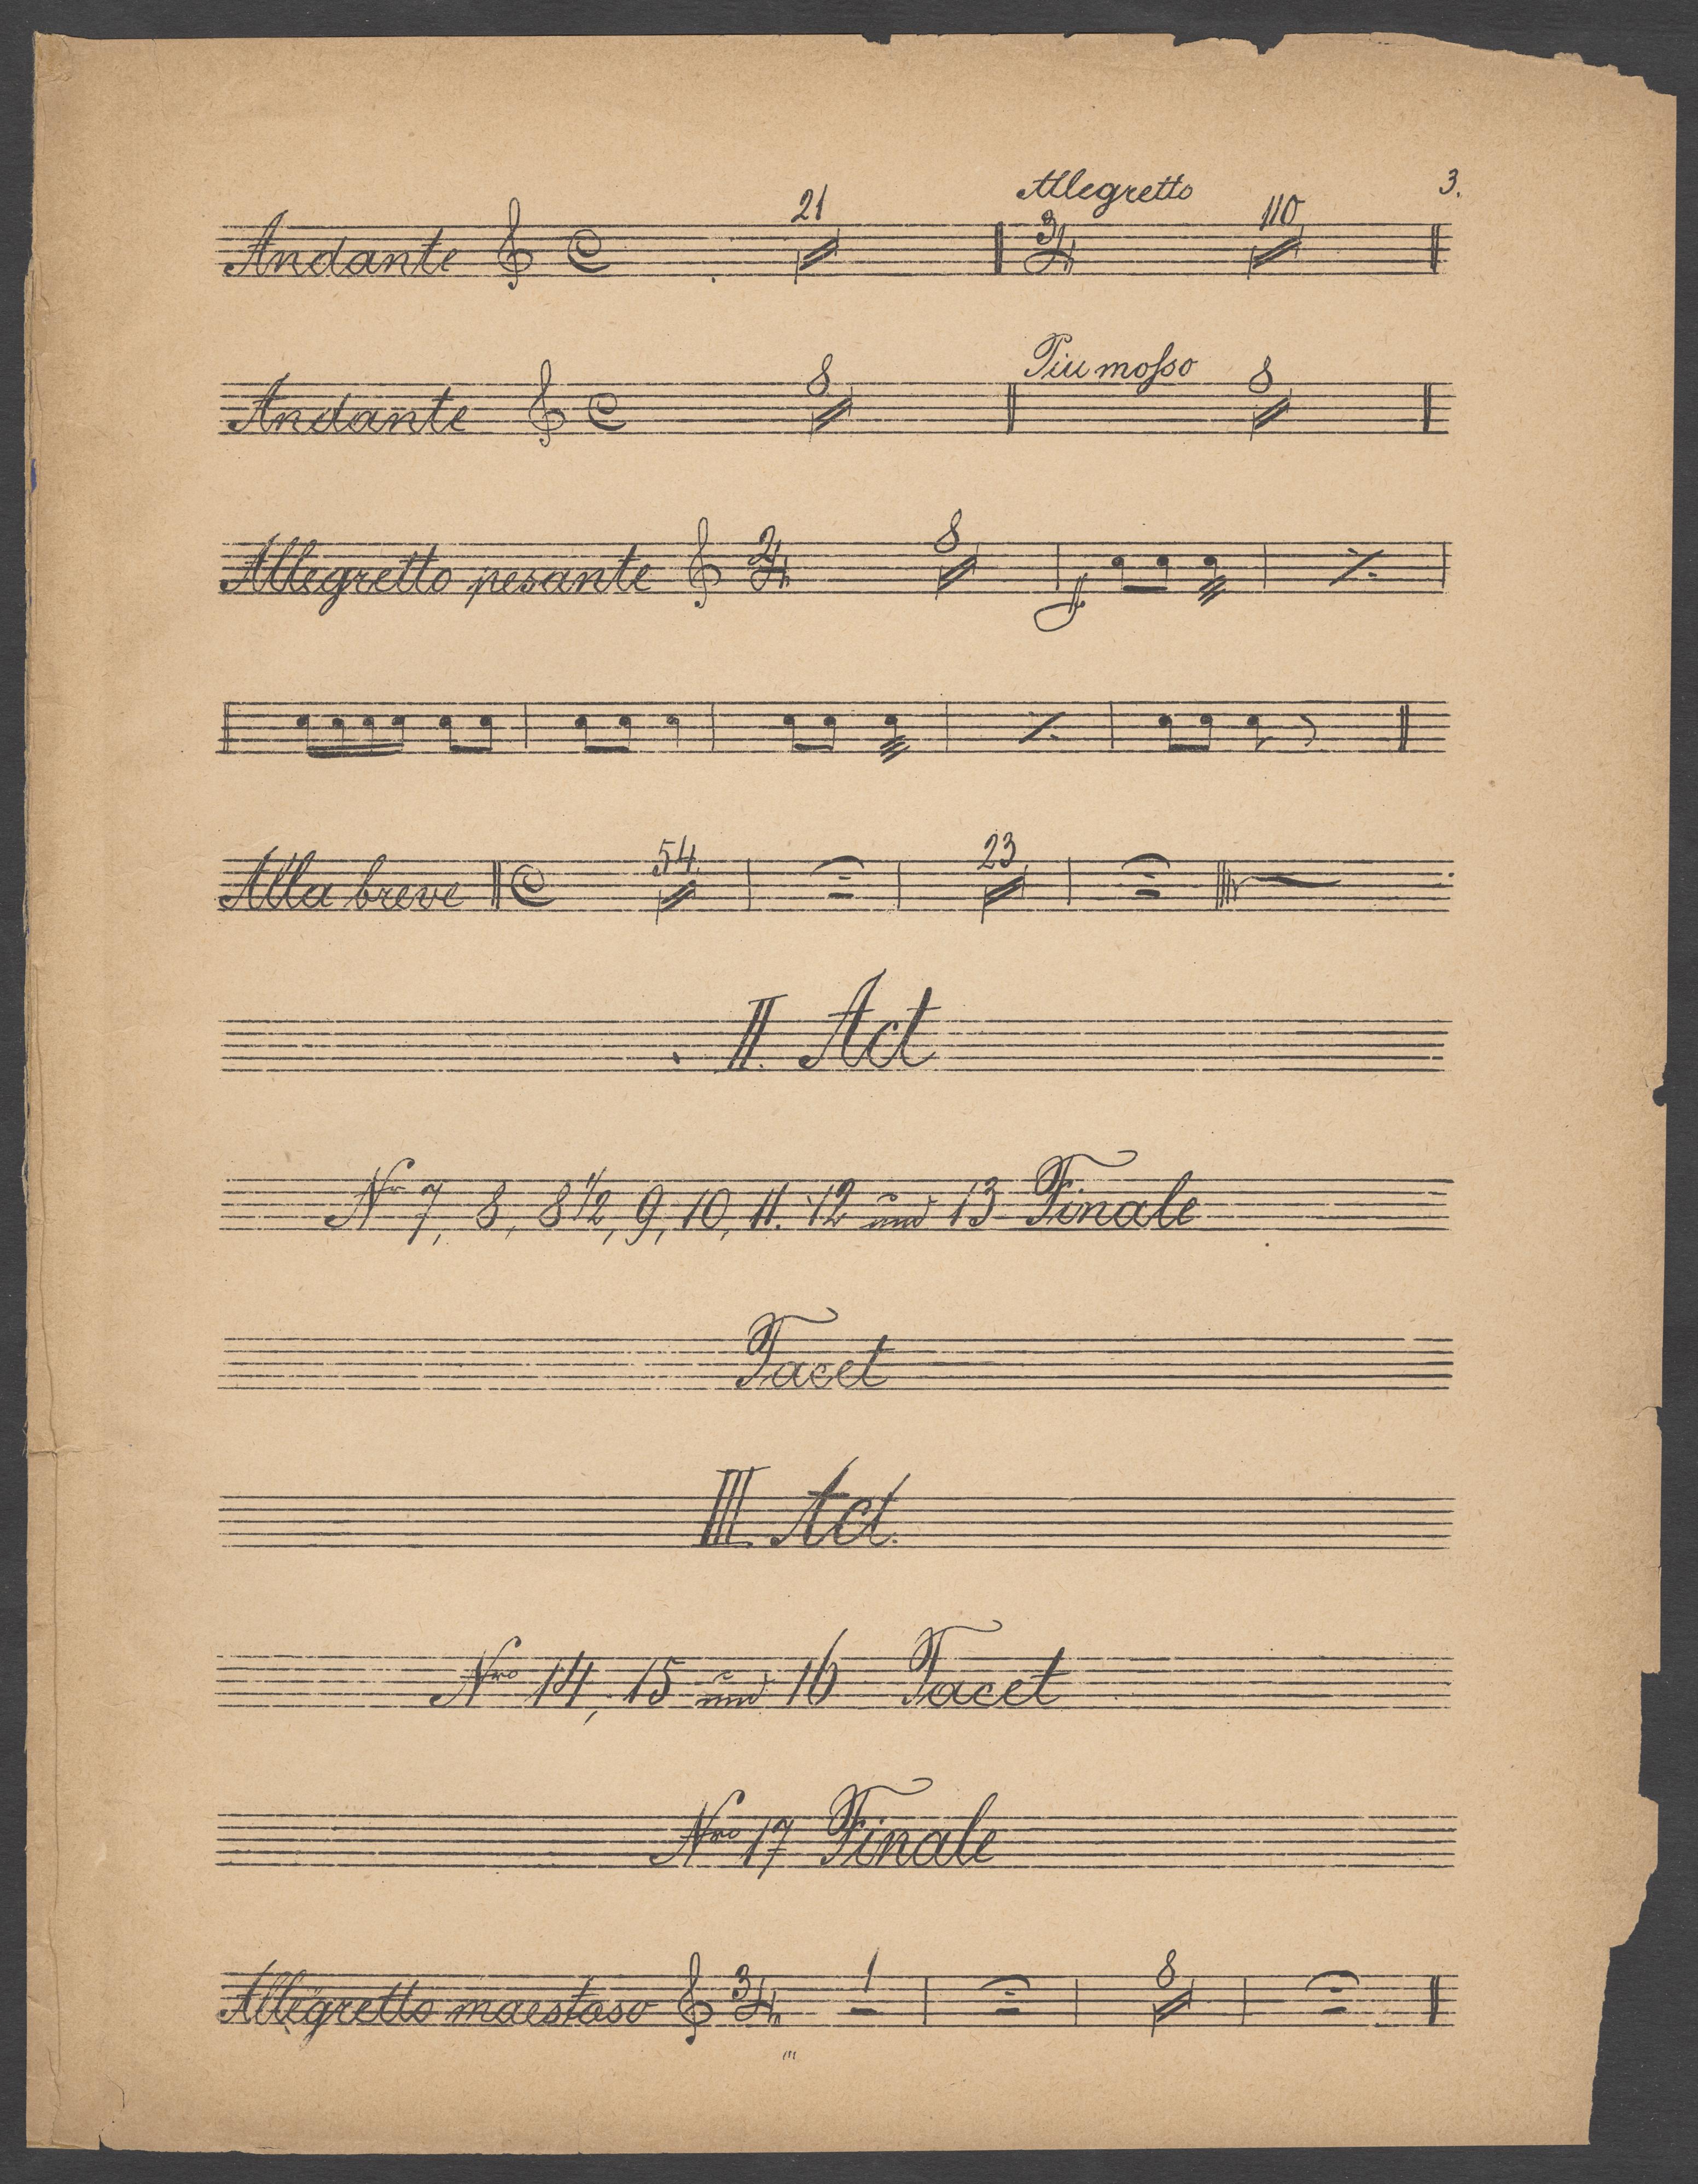 3.
Allegretto
Andante 21 3/4 110
Piu mosso
Andante 8 8
Allegretto pesante 2/4 8 f
Alla breve 54 23
II. Act
Nr 7, 8, 8 1/2, 9, 10, 11. 12 und 13 Finale
Tacet
III Act.
Nro 14, 15 und 16 Tacet
Nro 17 Finale
Allegretto maestoso 3/4 1 8